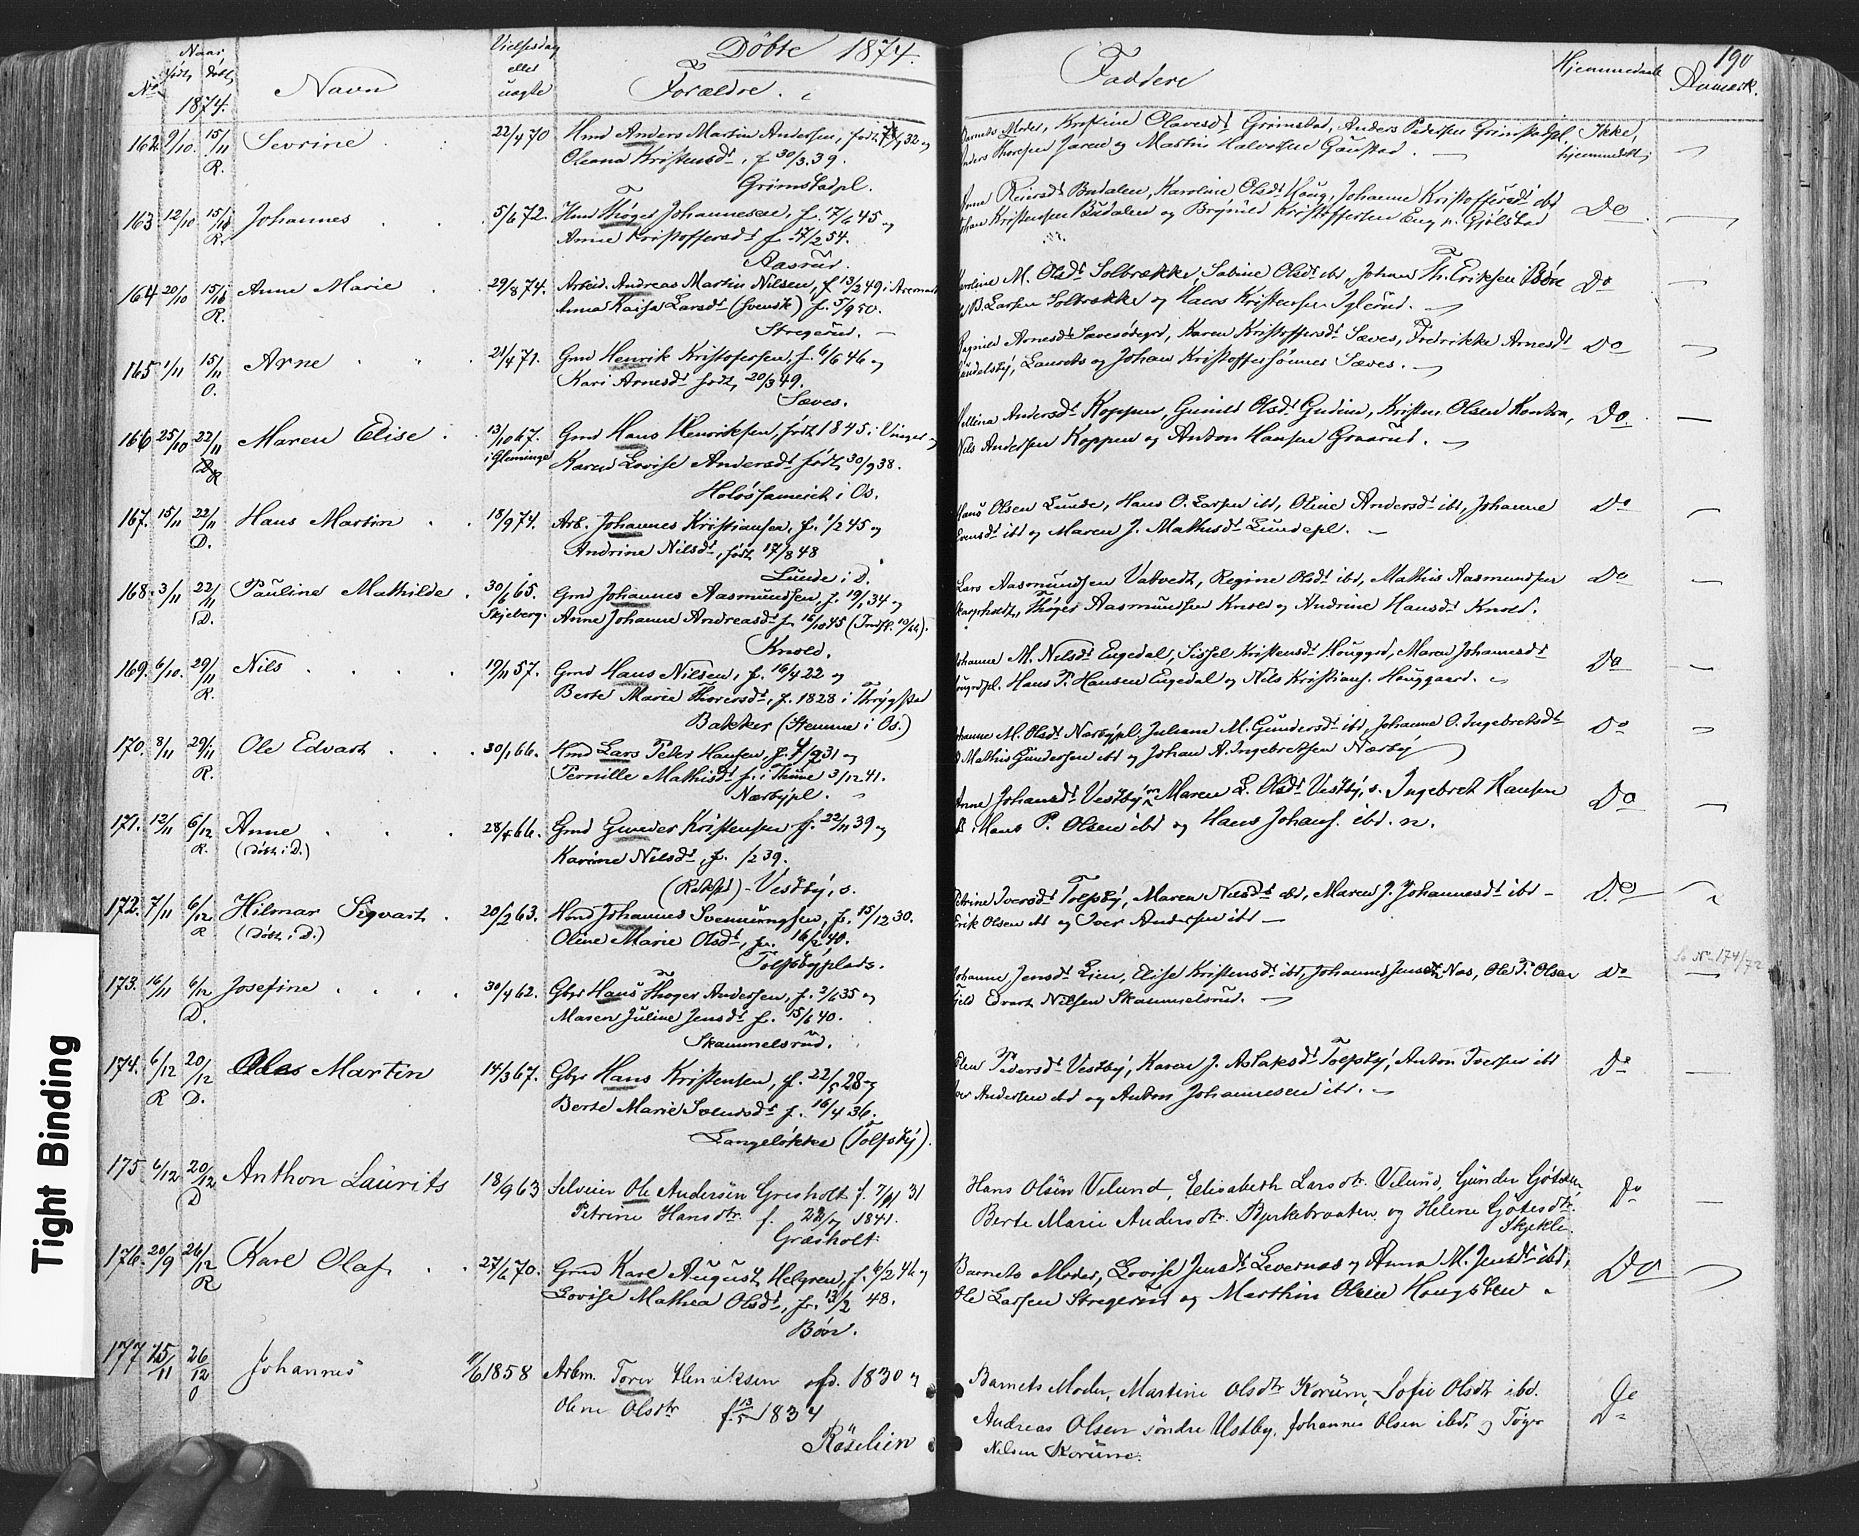 Døbte 1874.
190
No
Naar
født
døbt
1874.
Navn
Vielsesdag
eller
uægte
Forældre.
Faddere
Hjemmedøbt
Anmærk.
162 9/10 15/11 R. Sevrine 22/4 70 Hmd Anders Martin Andersen, født 32 og
Oleana Kristensdt, f 30/3 39.
Grimstadpl.
Barnets Moder, Kristine Olavesdt Grimstad, Anders Pedersen Grimstadpl.
Anders Thoresen Jaren og Martin Halvorsen Gaustad.
Ikke hjemmedøbt
163 12/10 15/11 R. Johannes 5/6 72. Hmd Thøger Johannesen, f. 17/6 45 og
Anne Kristoffersdt f. 17/2 54.
Aasrud.
Anne Reiersdt Budalen, Karoline Olsdt Houg, Johanne Kristoffersdt ibd
Johan Kristensen Budalen og Brynild Kristoffersen Eng n. Gjølstad
Do
164 20/10 15/11 R. Anne Marie 29/8 74. Arbeid. Andreas Martin Nilsen, f 13/2 49 i Aremark
Anna Kaisa Larsdt (Svensk) f. 5/9 50.
Stregerud.
Karoline M. Olsdt Solbrække, Sabine Olsdt ibd, Johan Th. Eriksen Bøvre
M. B. Larsen Solbrække og Hans Kristensen Iglerud.
Do
165 1/11 15/11 O. Arne 21/4 71. Gmd Henrik Kristofersen, f. 6/6 46 og
Kari Arnesdt født 20/3 49.
Sæves.
Ragnild Arnesdt Sævesødegrd, Karen Kristoffersdt Sæves, Fredrikke Arnesdt
Laurits og Johan Kristoffersønner Sæves.
Do
166 25/10 22/11 R Maren Elise 13/10 67. i Glemminge Gmd Hans Henriksen, født 1845 i
Karen Lovise Andersdt født 30/9 38.
i Os.
Mellina Andersdt Koppen, Gunild Olsdt Gudim, Kristen Olsen Kontra,
Nils Andersen Koppen og Anton Hansen Graarud.
Do.
167. 15/11 22/11 D. Hans Martin 18/9 74. Arb. Johannes Kristiansen, f. 1/2 45 og
Andrine Nilsdt, født 17/8 48
Lunde i D.
Hans Olsen Lunde, Hans O. Larsen ibd, Oline Andersdt ibd, Johanne
Evensdt ibd og Maren J. Mathisdt Lundepl.
Do
168. 3/11 22/11 D. Pauline Mathilde 30/6 65. Skjeberg. Gmd Johannes Aasmundsen, f. 19/1 34 og
Anne Johanne Andreasdt f. 16/10 45
Knold.
Lars Aasmundsen Vatvedt, Regine Olsdt ibd, Mathis Aasmundsen
Thøger Aasmundsen Knold og Andrine Hansdt Knold.
Do
169. 6/10. 29/11 R. Nils 19/11 57. Gmd Hans Nilsen, f. 16/4 22 og
Berte Marie Thoresdt, f. 1828 i Thrygstad
Bakker (Hemne i Os.)
Johanne M. Nilsdt Engedal, Sissel Kristensdt Houggrd, Maren Johannesdt
Hans P. Hansen Engedal og Nils Kristians. Houggaard.
Do
170. 8/11 29/11 R. Ole Edvart 30/1 66. Hmd Lars Peter Hansen f. 4/9 31 og
Pernille Mathisdt f. i Thune 3/12 41.
Nærbypl.
Johanne M. Olsdt Nærbypl, Juliane M. Gundersdt ibd, Johanne O. Ingebretsdt
Mathis Gundersen ibd og Johan A. Ingebretsen Nærby
Do
171. 12/11 6/12 R. Anne (Døbt i D.) 28/4 66. Gmd Gunder Kristensen f. 22/11 39 og
Karine Nilsdt, f. /2 39.
Vestby, s.
Anne Johansdt Vestby, n Maren L. Olsdt Vestby, s. Ingebret Hansen
Hans P. Olsen ibd og Hans Johans. ibd. n.
Do
172. 7/11 6/12 R Hilmar Sigvart (Døbt i D.) 20/2 63. Hmd Johannes Svenningsen, f. 15/12 30.
Oline Marie Olsdt, f. 16/2 40.
Tolfsbyplads.
Petrine Iversdt Tolfsby, Maren Nilsdt ibd, Maren J. Johannesdt ibd
Erik Olsen ibd og Iver Andersen ibd
Do
173. 16/11 6/12 D. Josefine 30/4 62. Gbr Hans Thøger Andersen, f. 2/6 35 og
Maren Juline Jensdt f. 15/6 40.
Skammelsrud.
Johanne Jensdt Lien, Elise Kristensdt ibd, Johannes Jensen Næs, Ole T. Olsen
Edvart Nilsen Skammelsrud.
Do
Se No 174/72
174. 6/12 R 20/12 D. Martin 14/3 67. Gbr Hans Kristensen, f. 22/5 28 og
Berte Marie Svensdt f. 16/4 36.
Langeløkke (Tolfsby).
Elen Pedersdt Vestby, Karen J. Aslaksdt Tolfsby, Anton Iversen ibd
Iver Andersen ibd og Anton Johannesen ibd.
Do
175 6/12 20/12 D Anthon Laurits 18/9 63 Selveier Ole Andersen Græsholt f. 31
Petrine Hansdtr. f. 22/7 1841.
Græsholt
Hans Olsen Vilund, Elisabeth Larsdtr. Vilund, Gunder
Berte Marie Andersdtr. Bjerkebraaten og Helene
Do
176. 20/9 26/12 R Karl Olaf 27/6 70. Gmd Karl August Helgren, f. 6/2 46 og
Lovise Mathea Olsdt, f. 13/2 48.
Bøn.
Barnets Moder, Lovise Jensdt Levernæs og Anna M. Jensdt ibd,
Ole Larsen Stregerud og Marthin Olsen Hougsten
Do
177 15/11 26/12 O Johannes 11/6 1858 Arbm. Torer Henriksen fd. 1830 og
Oline Olsdtr f. 13/5 1834
Røselien
Barnets Moder, Martine Olsdtr Korum, Sofie Olsdtr ibd.
Andreas Olsen søndre Ustby, Johannes Olsen ibd. og Tøger
Nilsen Korum.
Do
Tight Binding